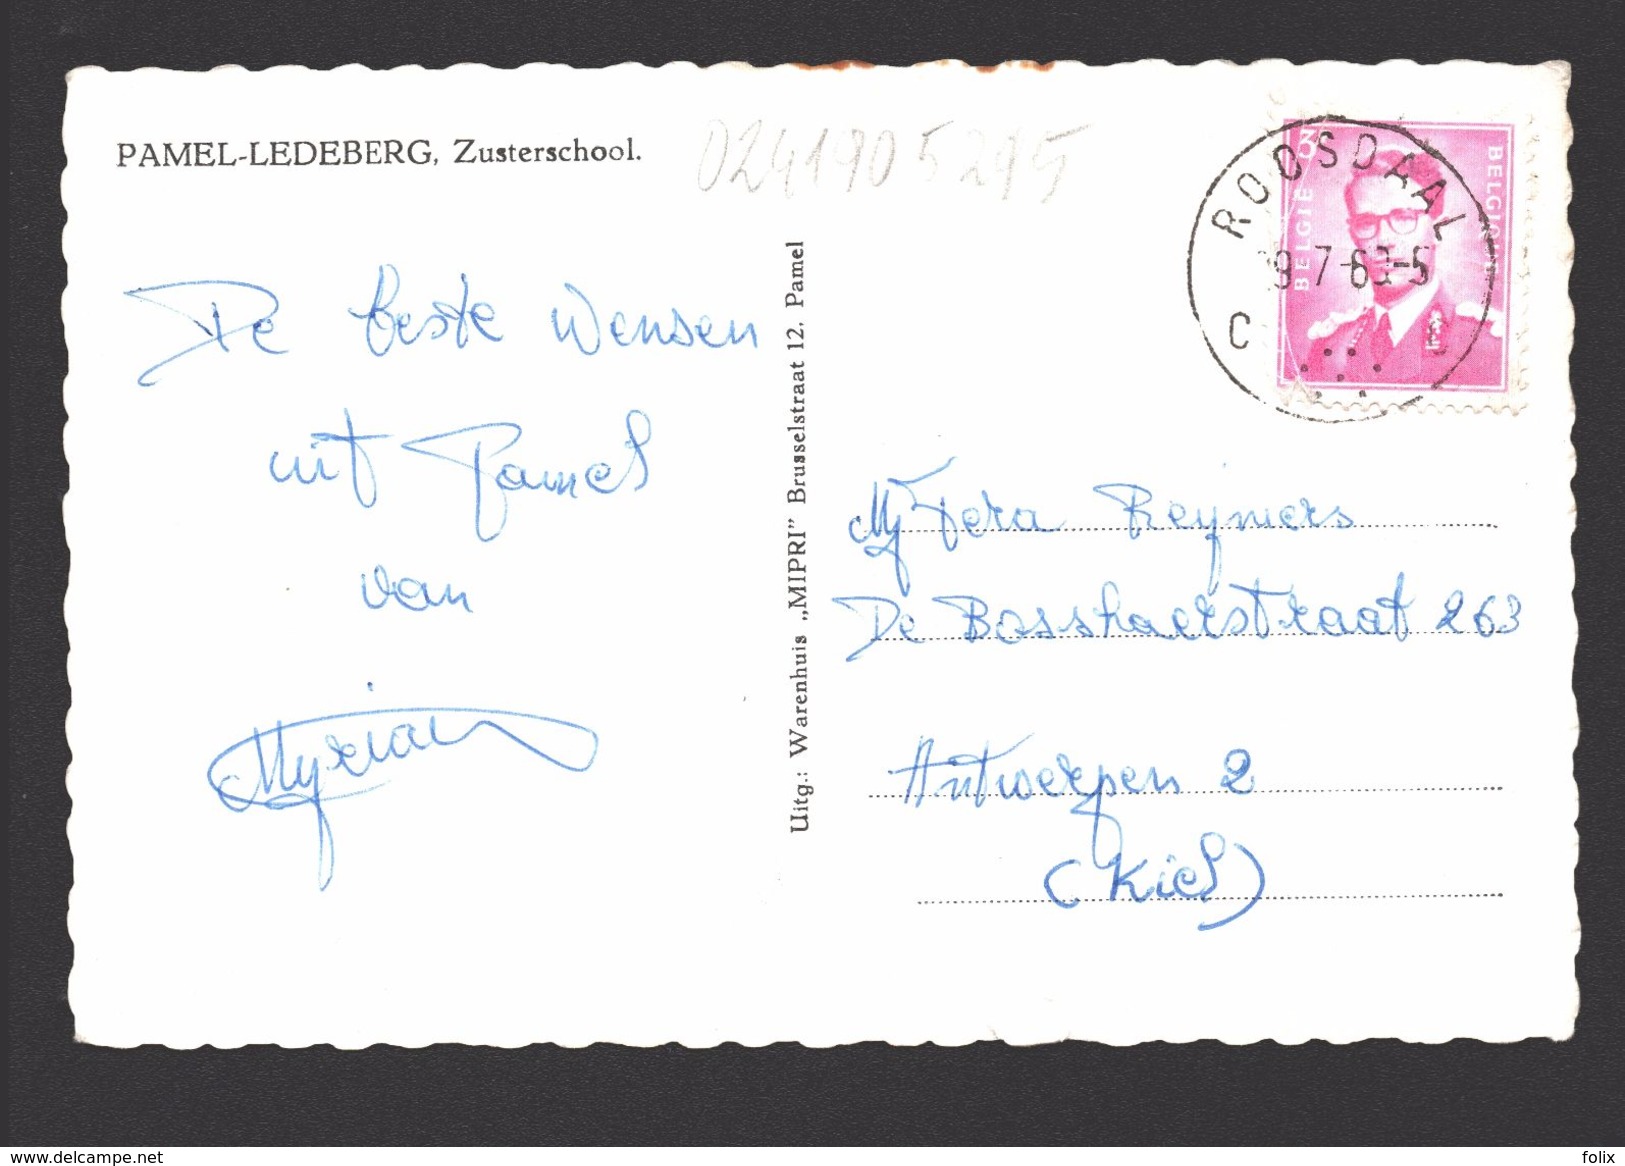 PAMEL-LEDEBERG, Zusterschool.
0241905295
De beste wensen
uit Pamel
van
Myriam
Uitg.: Warenhuis „MIPRI” Brusselstraat 12. Pamel
ROOSDAAL
7-63-5
C C
3
BELGIE
BELGIQUE
Mej Vera Reyniers
De Bosshaerstraat 263
Antwerpen 2
(Kiel)
www.delcampe.net
folix